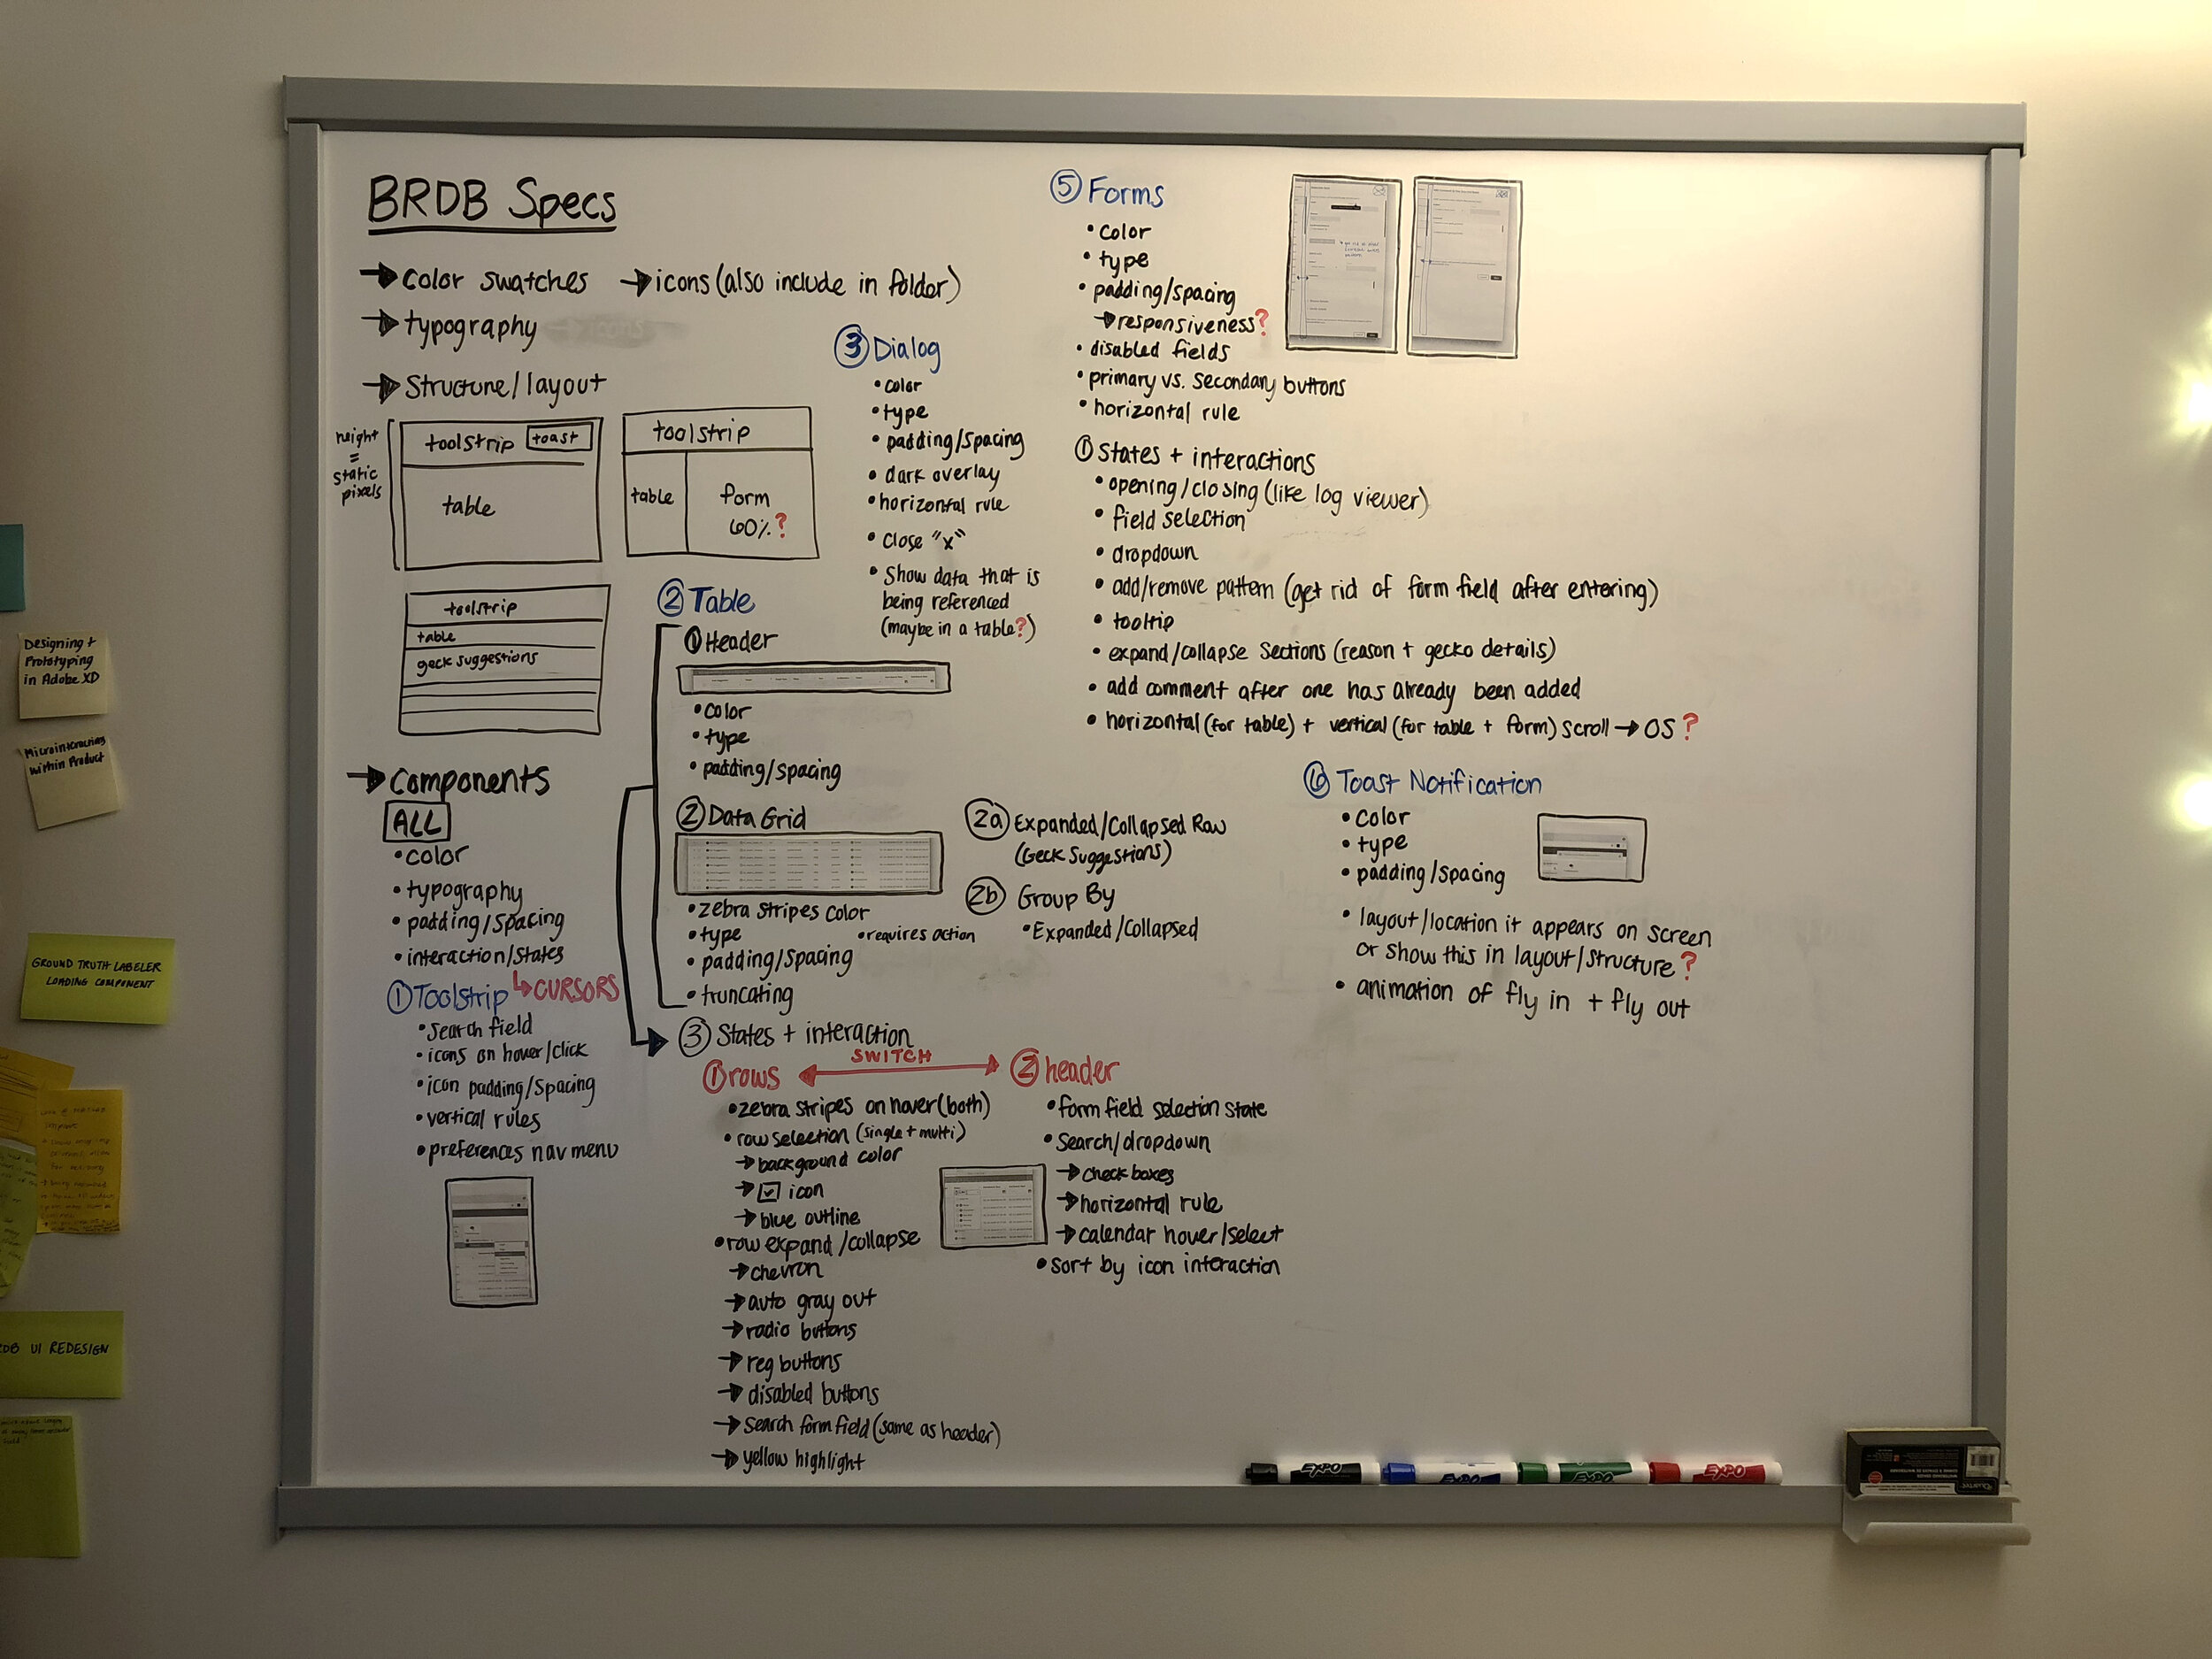 BRDB Specs
→ color swatches → icons (also include in folder)
→ typography
→ Structure/layout
height
=
static
pixels
toolstrip toast
table
toolstrip
table
form
60%?
toolstrip
table
geck suggestions
→ Components
ALL
• color
• typography
• padding/spacing
• interaction/states
↳ CURSORS
① Toolstrip
• search field
• icons on hover/click
• icon padding/spacing
• vertical rules
• preferences nav menu
② Table
① Header
• color
• type
• padding/spacing
② Data Grid
• zebra stripes color
• type
• requires action
• padding/spacing
• truncating
2a Expanded/Collapsed Row
(Geck Suggestions)
2b Group By
• Expanded/Collapsed
③ States + interaction
SWITCH
① rows
• zebra stripes on hover (both)
• row selection (single + multi)
→ background color
→ ☑ icon
→ blue outline
• row expand/collapse
→ chevron
→ auto gray out
→ radio buttons
→ reg buttons
→ disabled buttons
→ search form field (same as header)
→ yellow highlight
② header
• form field selection state
• search/dropdown
→ check boxes
→ horizontal rule
→ calendar hover/select
• sort by icon interaction
③ Dialog
• color
• type
• padding/spacing
• dark overlay
• horizontal rule
• close "x"
• Show data that is
being referenced
(maybe in a table?)
⑤ Forms
• color
• type
• padding/spacing
→ responsiveness?
• disabled fields
• primary vs. secondary buttons
• horizontal rule
① States + interactions
• opening/closing (like log viewer)
• field selection
• dropdown
• add/remove pattern (get rid of form field after entering)
• tooltip
• expand/collapse sections (reason + gecko details)
• add comment after one has already been added
• horizontal (for table) + vertical (for table + form) scroll → OS ?
⑥ Toast Notification
• color
• type
• padding/spacing
• layout/location it appears on screen
or show this in layout/structure?
• animation of fly in + fly out
Designing +
Prototyping
in Adobe XD
within Product
GROUND TRUTH LABELER
LOADING COMPONENT
UI REDESIGN
EXPO
EXPO
EXPO
EXPO